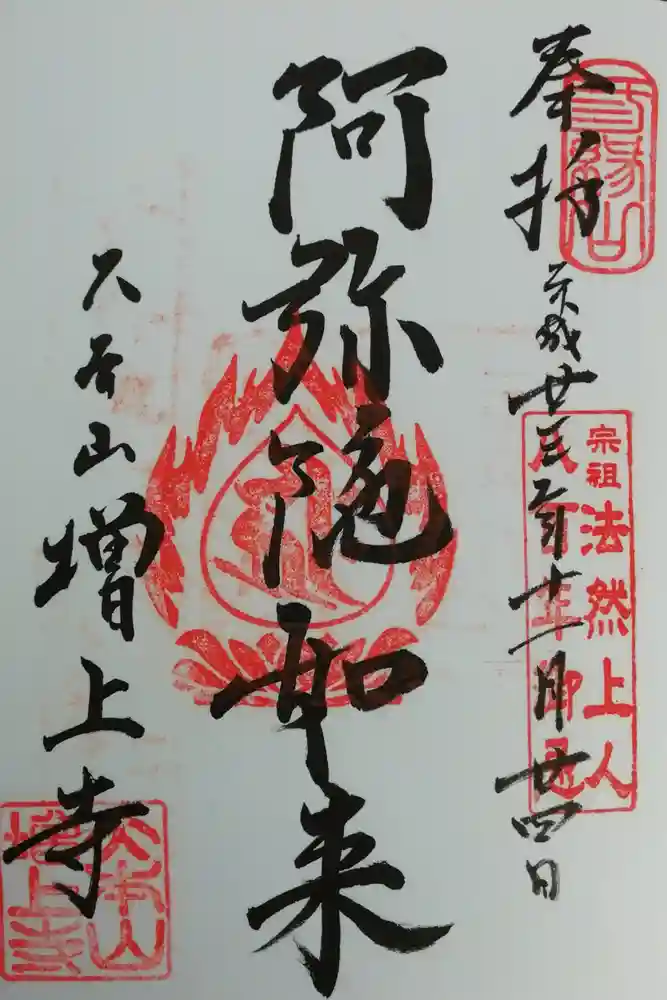 奉拝
平成廿三年十一月廿四日
三縁山
宗祖法然上人
八百年御忌
阿弥陀如来
大本山増上寺
大本山
増上寺